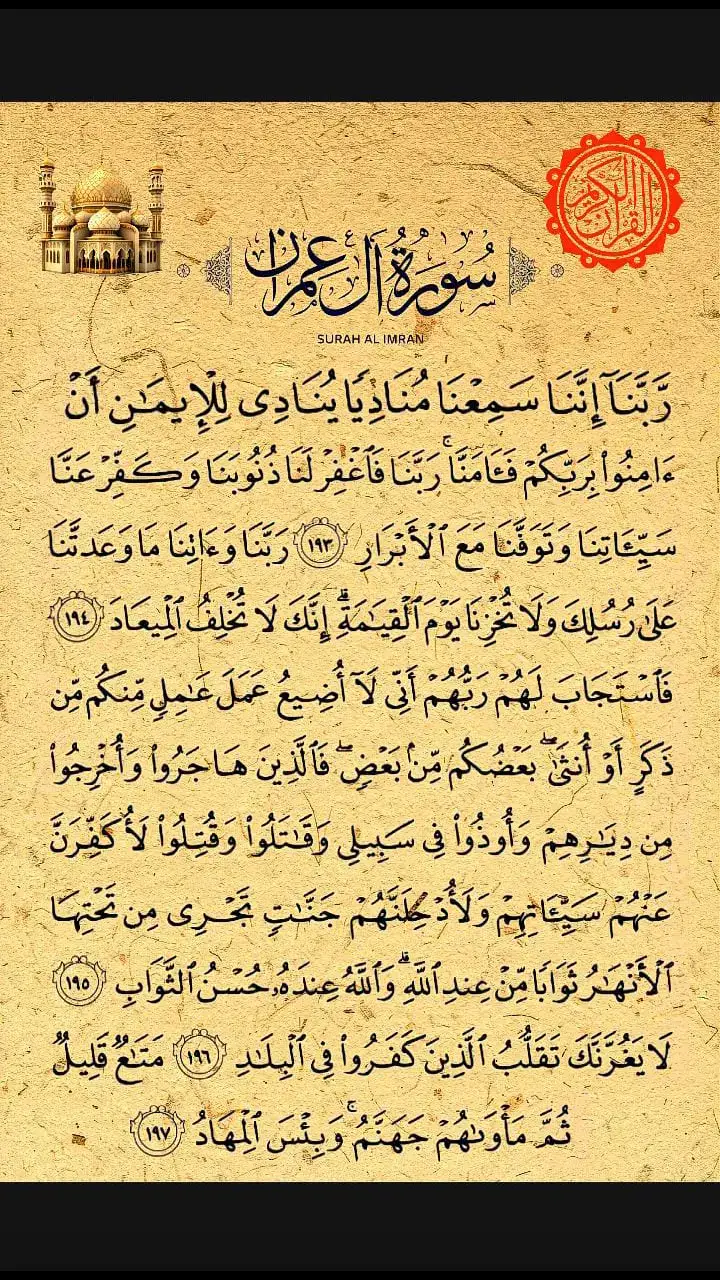 القرآن الكريم
سورة آل عمران
SURAH AL IMRAN
رَّبَّنَآ إِنَّنَا سَمِعْنَا مُنَادِيًا يُنَادِى لِلْإِيمَـٰنِ أَنْ
ءَامِنُوا۟ بِرَبِّكُمْ فَـَٔامَنَّا ۚ رَبَّنَا فَٱغْفِرْ لَنَا ذُنُوبَنَا وَكَفِّرْ عَنَّا
سَيِّـَٔاتِنَا وَتَوَفَّنَا مَعَ ٱلْأَبْرَارِ ١٩٣ رَبَّنَا وَءَاتِنَا مَا وَعَدتَّنَا
عَلَىٰ رُسُلِكَ وَلَا تُخْزِنَا يَوْمَ ٱلْقِيَـٰمَةِ ۗ إِنَّكَ لَا تُخْلِفُ ٱلْمِيعَادَ ١٩٤
فَٱسْتَجَابَ لَهُمْ رَبُّهُمْ أَنِّى لَآ أُضِيعُ عَمَلَ عَـٰمِلٍ مِّنكُم مِّن
ذَكَرٍ أَوْ أُنثَىٰ ۖ بَعْضُكُم مِّنۢ بَعْضٍ ۖ فَٱلَّذِينَ هَاجَرُوا۟ وَأُخْرِجُوا۟
مِن دِيَـٰرِهِمْ وَأُوذُوا۟ فِى سَبِيلِى وَقَـٰتَلُوا۟ وَقُتِلُوا۟ لَأُكَفِّرَنَّ
عَنْهُمْ سَيِّـَٔاتِهِمْ وَلَأُدْخِلَنَّهُمْ جَنَّـٰتٍ تَجْرِى مِن تَحْتِهَا
ٱلْأَنْهَـٰرُ ثَوَابًا مِّنْ عِندِ ٱللَّهِ ۗ وَٱللَّهُ عِندَهُۥ حُسْنُ ٱلثَّوَابِ ١٩٥
لَا يَغُرَّنَّكَ تَقَلُّبُ ٱلَّذِينَ كَفَرُوا۟ فِى ٱلْبِلَـٰدِ ١٩٦ مَتَـٰعٌ قَلِيلٌ
ثُمَّ مَأْوَىٰهُمْ جَهَنَّمُ ۚ وَبِئْسَ ٱلْمِهَادُ ١٩٧